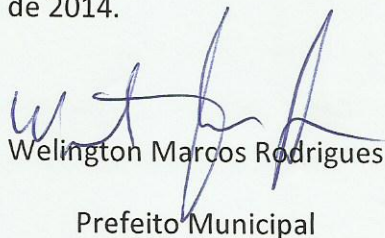 de 2014.
Welington Marcos Rodrigues
Prefeito Municipal